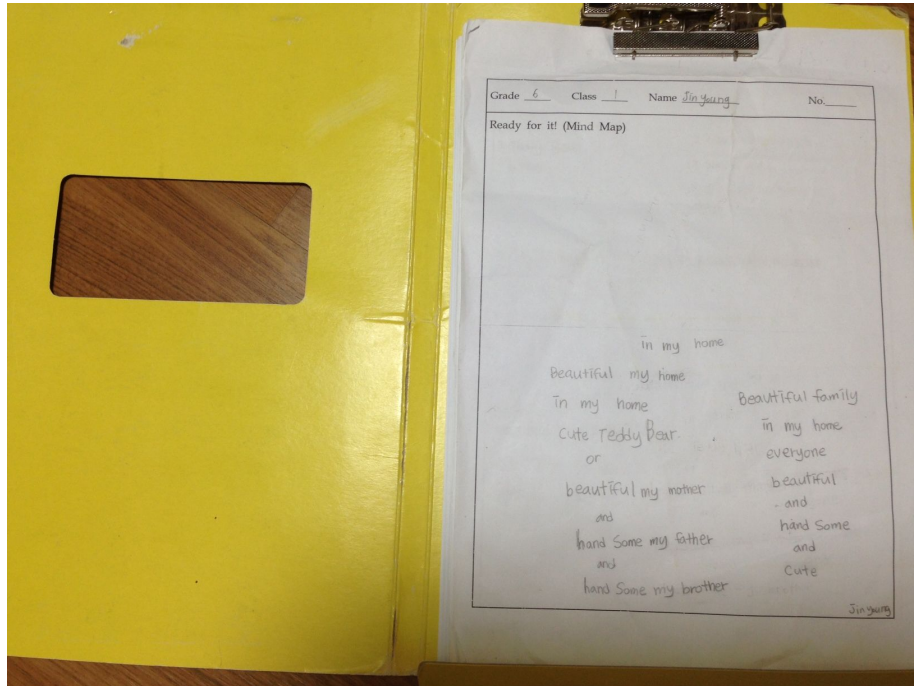 Grade 6 Class 1 Name Jin Young No.
Ready for it! (Mind Map)
in my home
Beautiful my home
in my home
Cute Teddy Bear.
or
beautiful my mother
and
hand Some my father
and
hand Some my brother
Beautiful family
in my home
everyone
beautiful
and
hand Some
and
Cute
Jin young